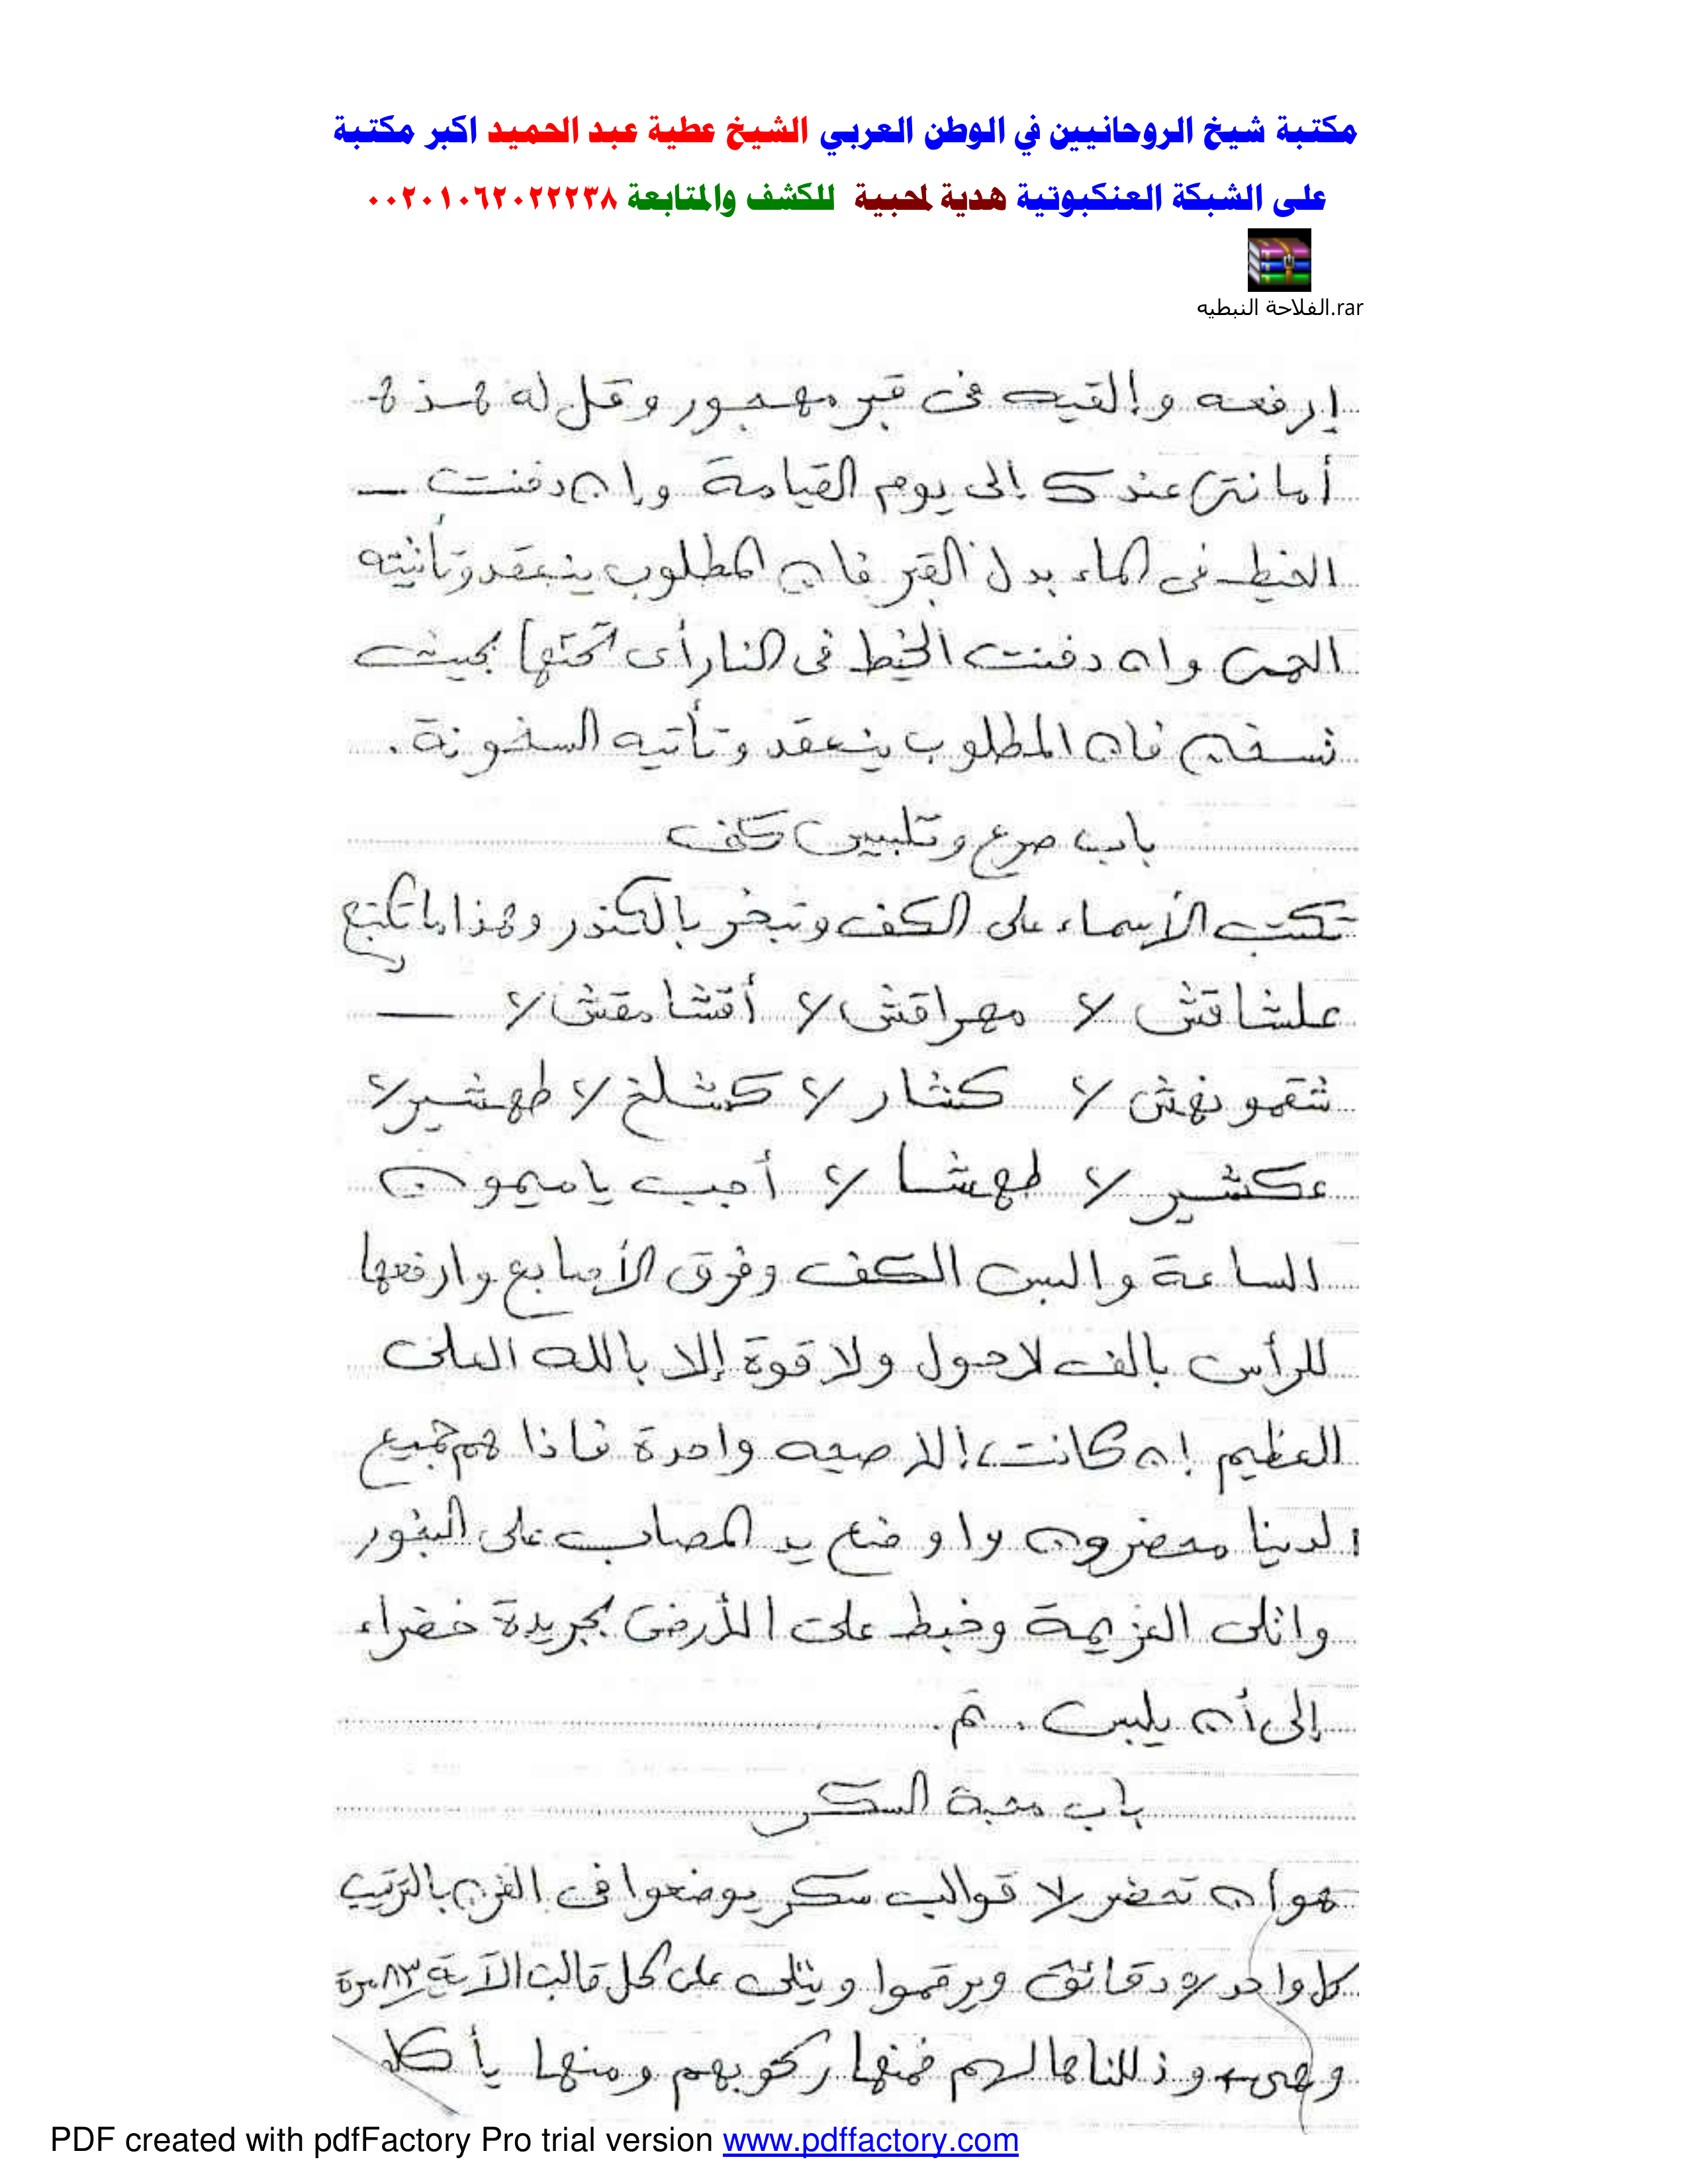 مكتبة شيخ الروحانيين في الوطن العربي الشيخ عطية عبد الحميد اكبر مكتبة
على الشبكة العنكبوتية هدية لمحبية للكشف والمتابعة ٠٠٢٠١٠٦٢٠٢٢٢٣٨
الفلاحة النبطيه.rar
إرفعه وإلقيه فى قبر مهجور وقل له هذه
أمانتى عندك إلى يوم القيامة وإن دفنت
الخيط فى الماء بدل القبر فان المطلوب ينعقد وتأتيه
الحمى وان دفنت الخيط فى النار أى تحتها بحيث
تسخن فان المطلوب ينعقد وتأتيه السخونة .
باب صرع وتلبيس كف
تكتب الأسماء على الكف وتبخر بالكندر وهذا ما تكتبع
علشاقش ٧ مهراقش ٧ أقشامقش ٧
شقمونهش ٧ كشار ٧ كشلخ ٧ طهشير ٧
عكشير ٧ طهشا ٧ أجب يا ميمون
الساعة والبس الكف وفرق الأصابع وارفعها
للرأس بالف لاحول ولا قوة إلا بالله العلى
العظيم إن كانت إلا صيحه واحدة فاذا هم جميع
لدينا محضرون واوضع يد المصاب على البخور
واتلى العزيمة وخبط على الأرض بجريدة خضراء
إلى أن يلبس . تم .
باب محبة السكر
هو أن تحضر ٧ قوالب سكر يوضعوا فى الفرن بالترتيب
كل واحد ٥ دقائق ويرقموا ويتلى على كل قالب الآية ٨٣ مرة
وهى وذللناها لهم فمنها ركوبهم ومنها يأكلو
PDF created with pdfFactory Pro trial version www.pdffactory.com